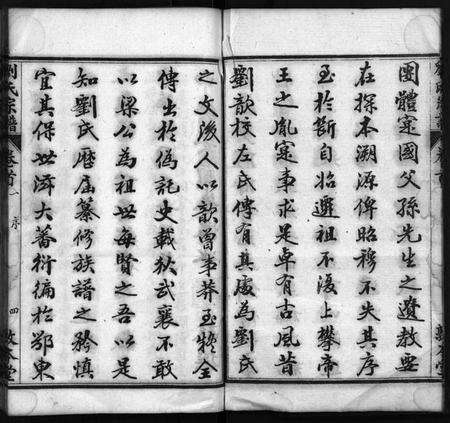 團體寔國父孫先生之遺教要
在探本溯源俾昭穆不失其序
至於斷自始遷祖不復上攀帝
王之胤寔事求是卓有古風昔
劉歆校左氏傳有其處為劉氏
之文後人以歆曾事莽至疑全
傳出於偽託史載狄武襄不敢
以梁公為祖世每賢之吾以是
知劉氏歷屆纂修族譜之矜慎
宜其保世滋大蕃衍徧於鄂東
劉氏宗譜
卷首
序
四